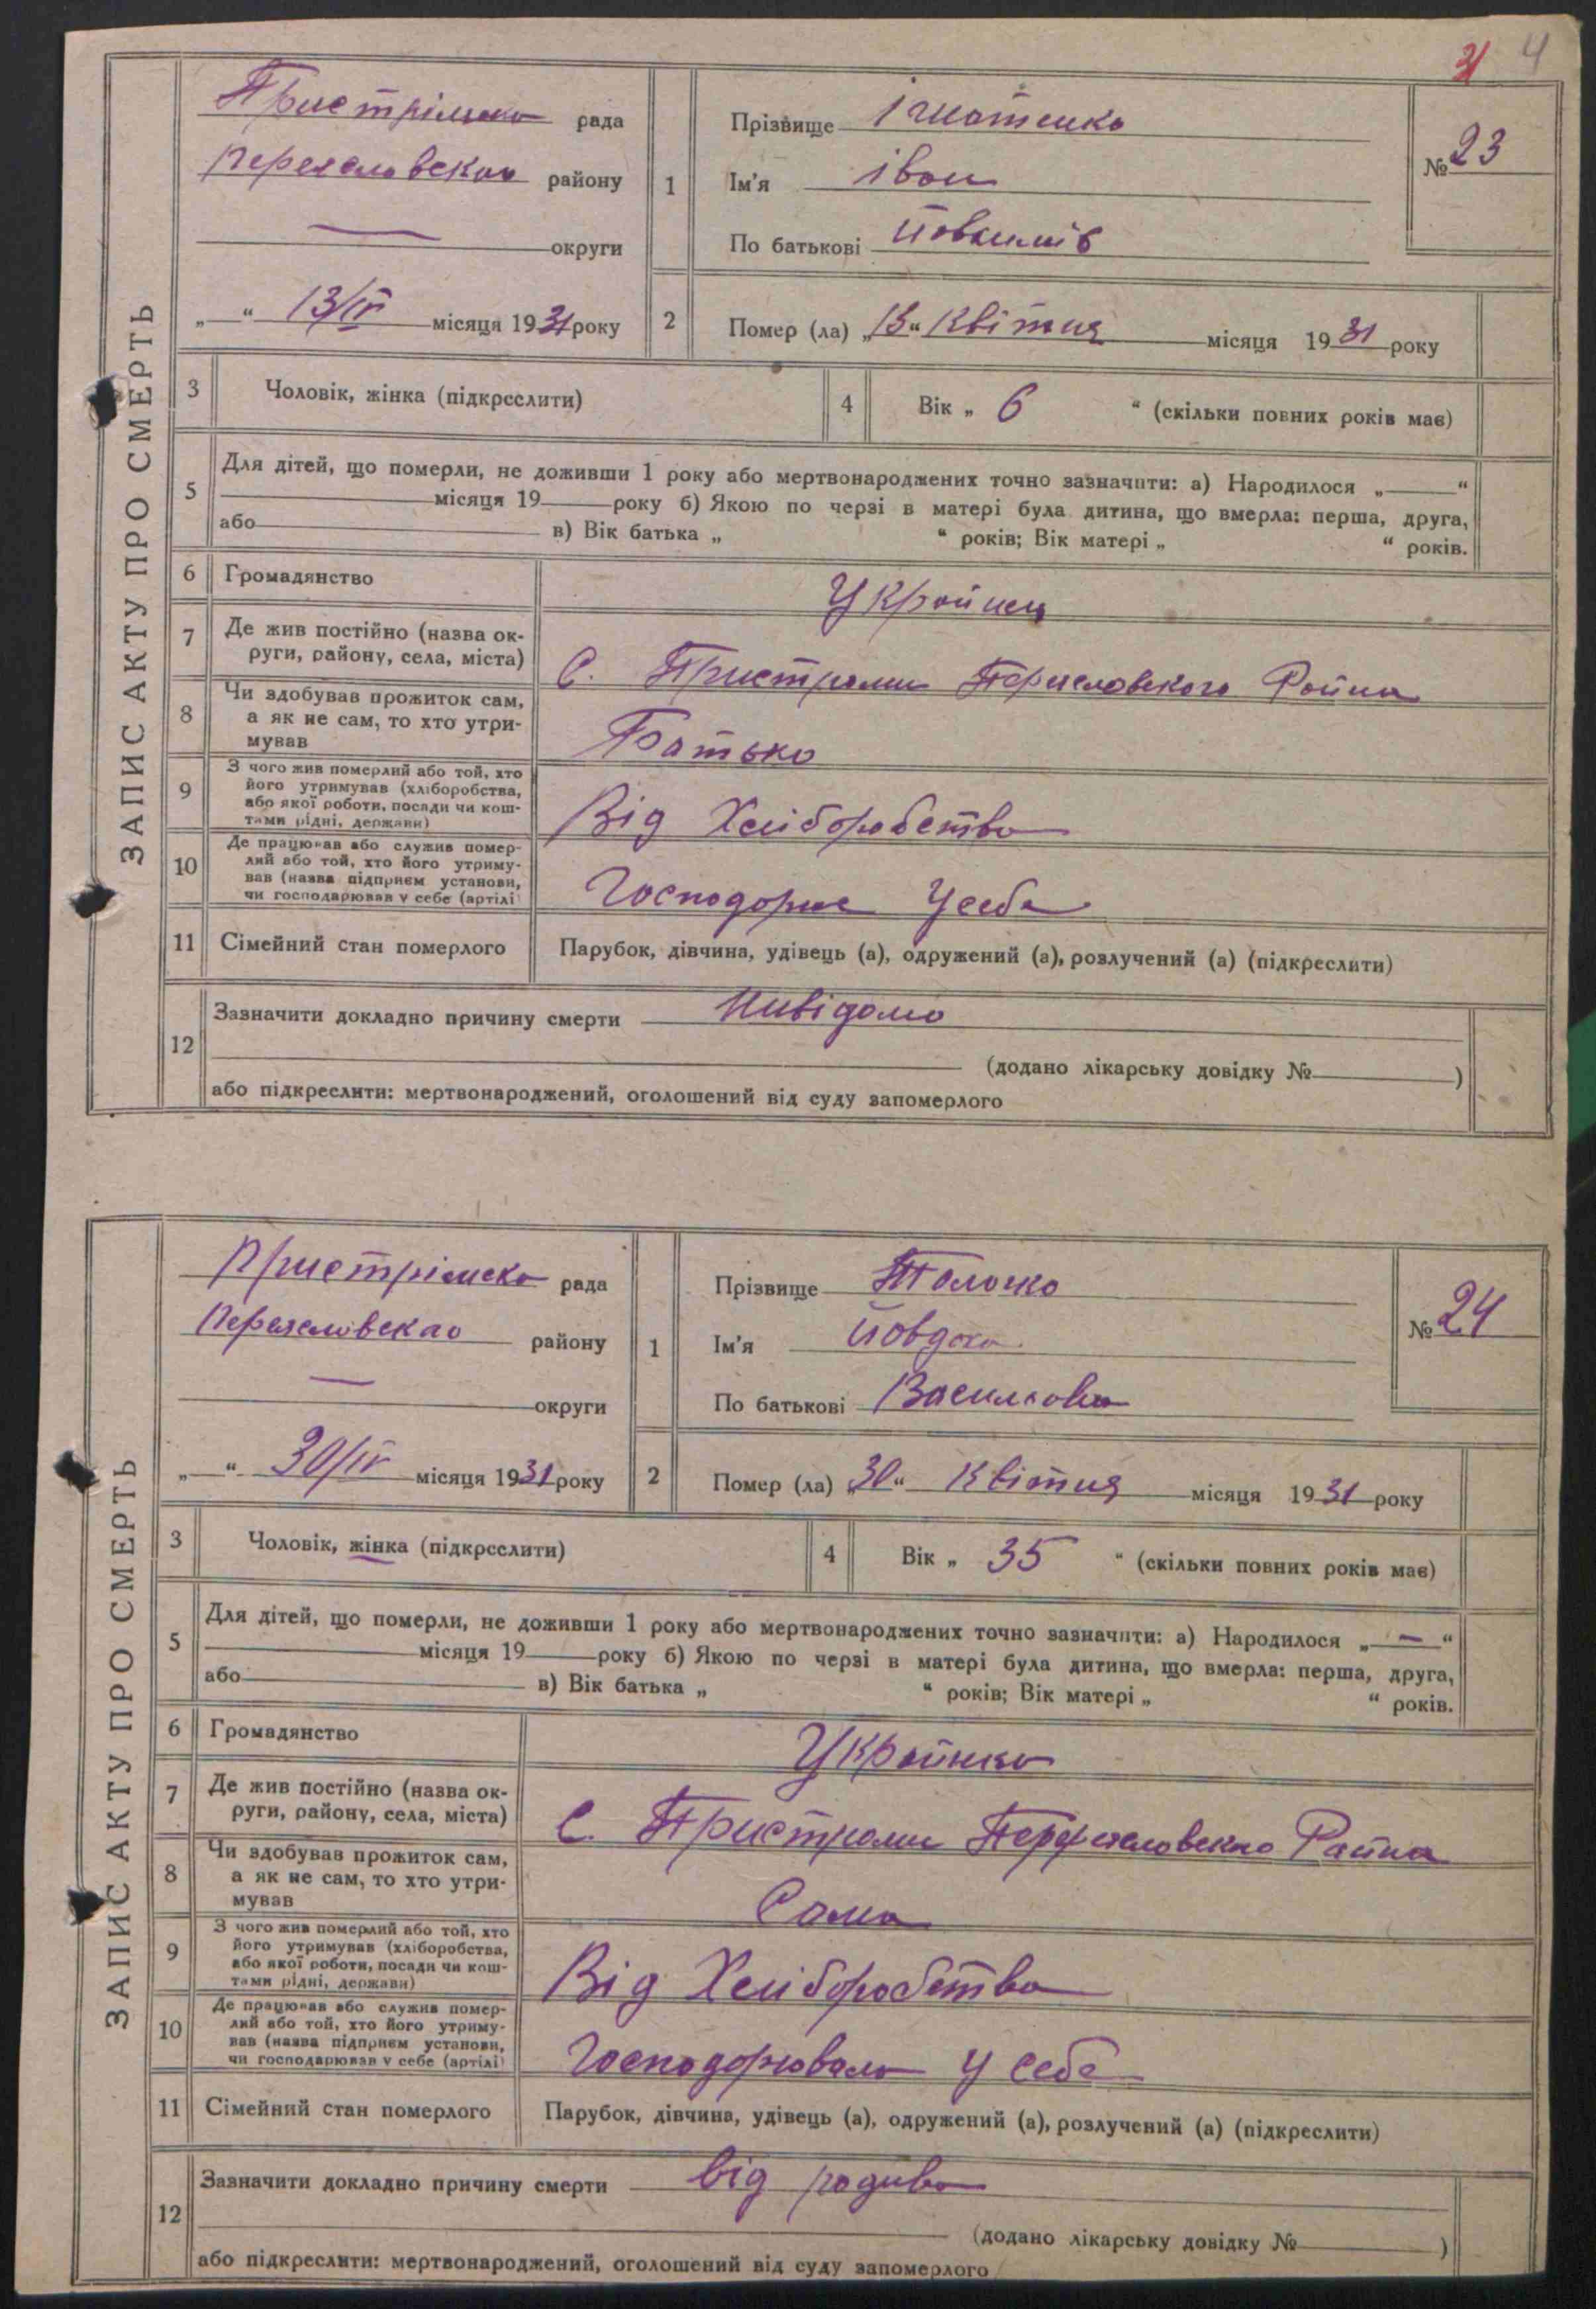 31 4
ЗАПИС АКТУ ПРО СМЕРТЬ
Пристрімсько рада
Переяславсько району
— округи
„—“ 13/IV місяця 1931 року
1 Прізвище Ігнатенко
Ім'я іван
По батькові йовхимів
№ 23
2 Помер (ла) „13“ Квітня місяця 1931 року
3 Чоловік, жінка (підкреслити)
4 Вік „ 6 “ (скільки повних років має)
5 Для дітей, що померли, не доживши 1 року або мертвонароджених точно зазначити: а) Народилося „——“
місяця 19——року б) Якою по черзі в матері була дитина, що вмерла: перша, друга,
або—— в) Вік батька „ “ років; Вік матері „ “ років.
6 Громадянство Украйнец
7 Де жив постійно (назва ок-
руги, району, села, міста) С. Пристроми Переяславского Району
8 Чи здобував прожиток сам,
а як не сам, то хто утри-
мував Батько
9 З чого жив померлий або той, хто
його утримував (хліборобства,
або якої роботи, посади чи кош-
тами рідні, держави) Від Хліборобства
10 Де працював або служив помер-
лий або той, хто його утриму-
вав (назва підприєм установи,
чи господарював у себе (артілі) Господорює Усебе
11 Сімейний стан померлого Парубок, дівчина, удівець (а), одружений (а), розлучений (а) (підкреслити)
12 Зазначити докладно причину смерти Нивідомо
(додано лікарську довідку №——)
або підкреслити: мертвонароджений, оголошений від суду запомерлого
ЗАПИС АКТУ ПРО СМЕРТЬ
Пристрімсько рада
Переяславскао району
— округи
„—“ 30/IV місяця 1931 року
1 Прізвище Толочко
Ім'я йовдоха
По батькові Василовна
№ 24
2 Помер (ла) „30“ Квітня місяця 1931 року
3 Чоловік, жінка (підкреслити)
4 Вік „ 35 “ (скільки повних років має)
5 Для дітей, що померли, не доживши 1 року або мертвонароджених точно зазначити: а) Народилося „—“
місяця 19——року б) Якою по черзі в матері була дитина, що вмерла: перша, друга,
або—— в) Вік батька „ “ років; Вік матері „ “ років.
6 Громадянство Украйнка
7 Де жив постійно (назва ок-
руги, району, села, міста) С. Пристроми Переяславскао Району
8 Чи здобував прожиток сам,
а як не сам, то хто утри-
мував Сама
9 З чого жив померлий або той, хто
його утримував (хліборобства,
або якої роботи, посади чи кош-
тами рідні, держави) Від Хліборобства
10 Де працював або служив помер-
лий або той, хто його утриму-
вав (назва підприєм установи,
чи господарював у себе (артілі) Господорювала У себе
11 Сімейний стан померлого Парубок, дівчина, удівець (а), одружений (а), розлучений (а) (підкреслити)
12 Зазначити докладно причину смерти від родива
(додано лікарську довідку №——)
або підкреслити: мертвонароджений, оголошений від суду запомерлого